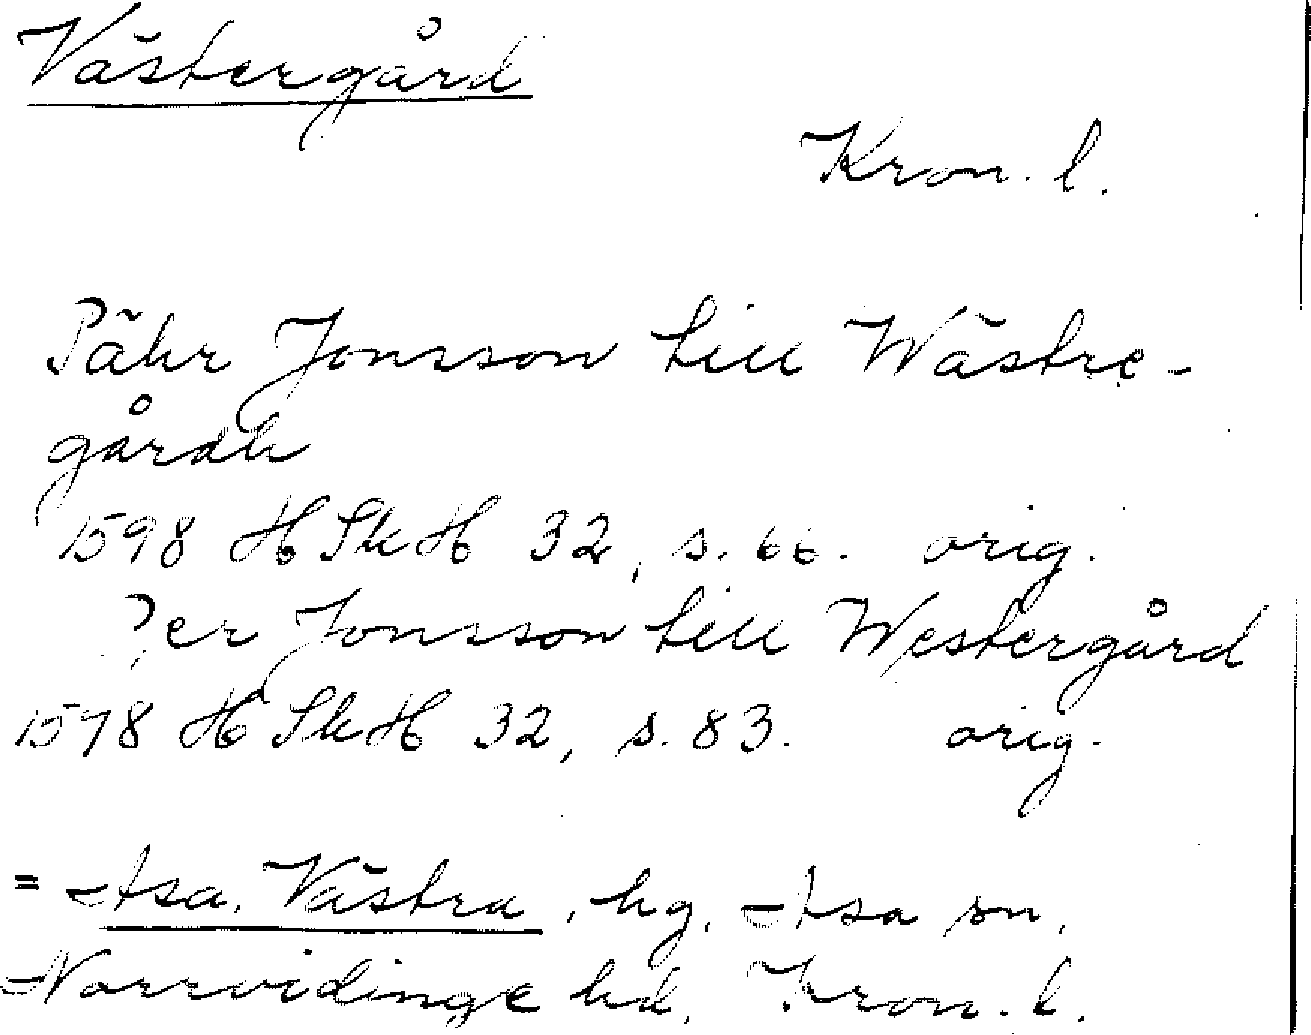 Västergård
Kron. l.
Pähr Jonsson till Wästre-
gårdh
1598 HSkH 32, s. 66. orig.
Per Jonsson till Westergård
1598 HSkH 32, s. 83. orig.
= Asa, Västra, hg, Asa sn,
Norrvidinge hd, Kron. l.